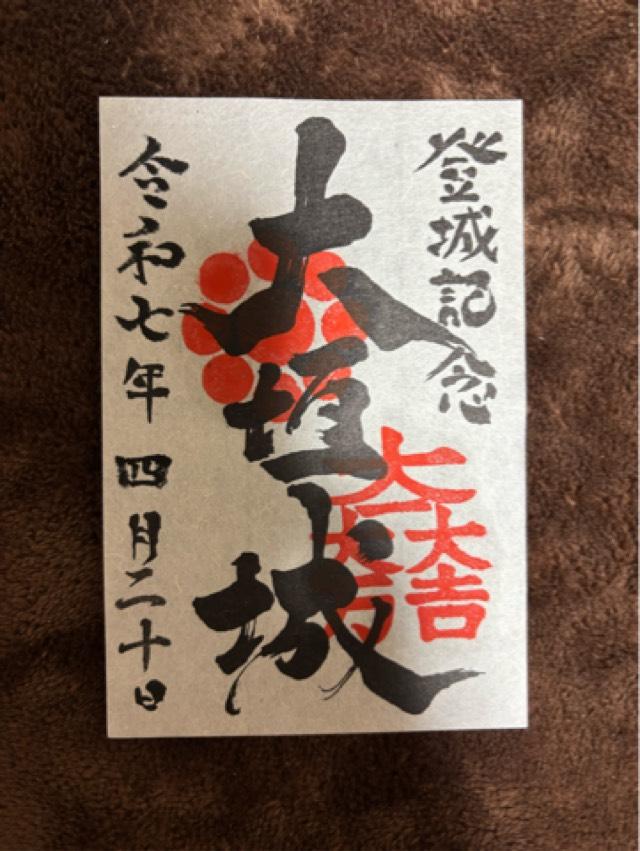 登城記念
大垣城
大一大万大吉
令和七年 四月二十日